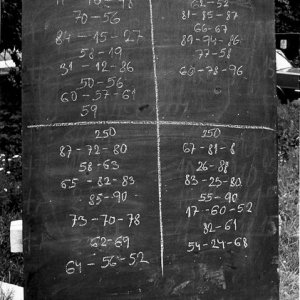 70-56
84-15-27
58-19
31-12-86
50-56
60-57-61
59
62-52
81-85-87
66-67
89-74-86
77-58
60-78-96
250
87-72-80
58-63
65-82-83
85-90
73-70-78
62-69
64-56-52
250
67-81-8
26-88
83-25-80
55-90
17-60-52
82-61
54-24-68